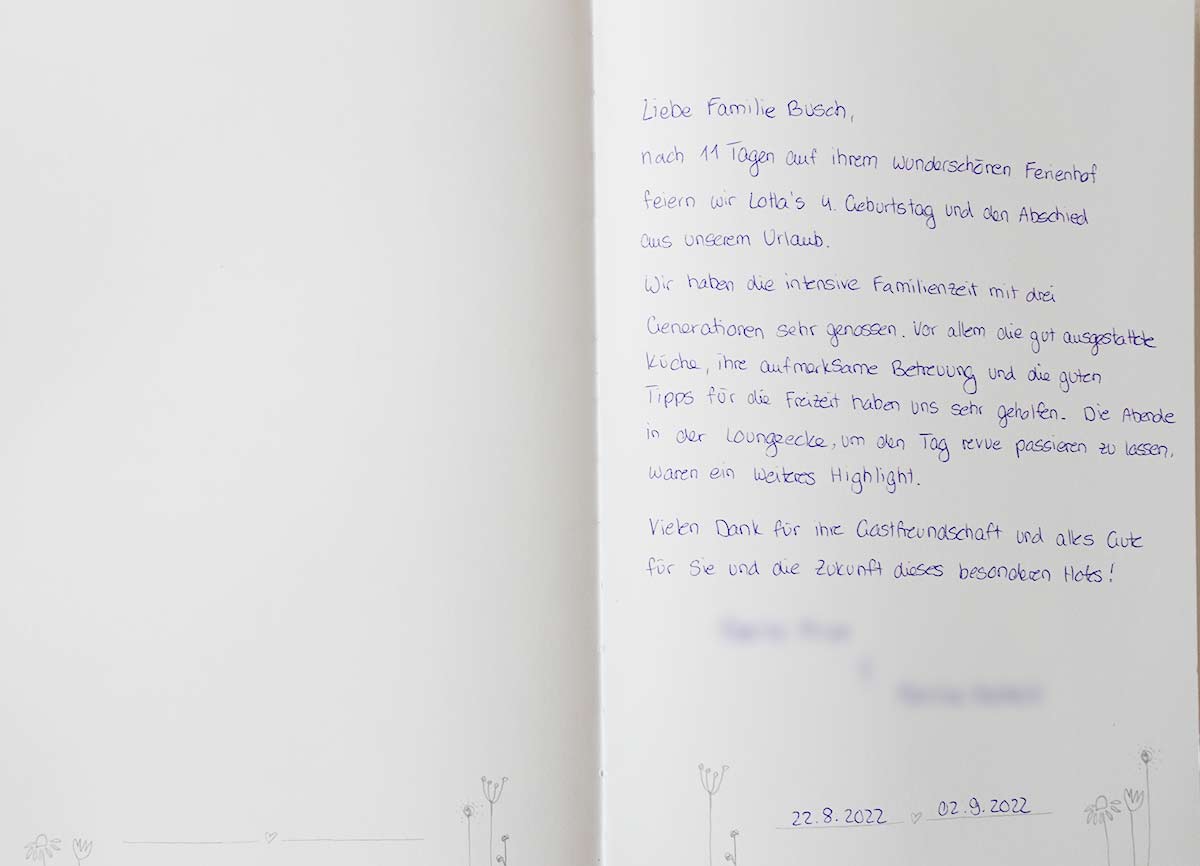 Liebe Familie Busch,
nach 11 Tagen auf ihrem wunderschönen Ferienhof
feiern wir Lotta's 4. Geburtstag und den Abschied
aus unserem Urlaub.
Wir haben die intensive Familienzeit mit drei
Generationen sehr genossen. Vor allem die gut ausgestattete
Küche, ihre aufmerksame Betreuung und die guten
Tipps für die Freizeit haben uns sehr geholfen. Die Abende
in der Loungeecke, um den Tag revue passieren zu lassen,
waren ein weiteres Highlight.
Vielen Dank für ihre Gastfreundschaft und alles Gute
für Sie und die Zukunft dieses besonderen Hofes!
22.8.2022 02.9.2022